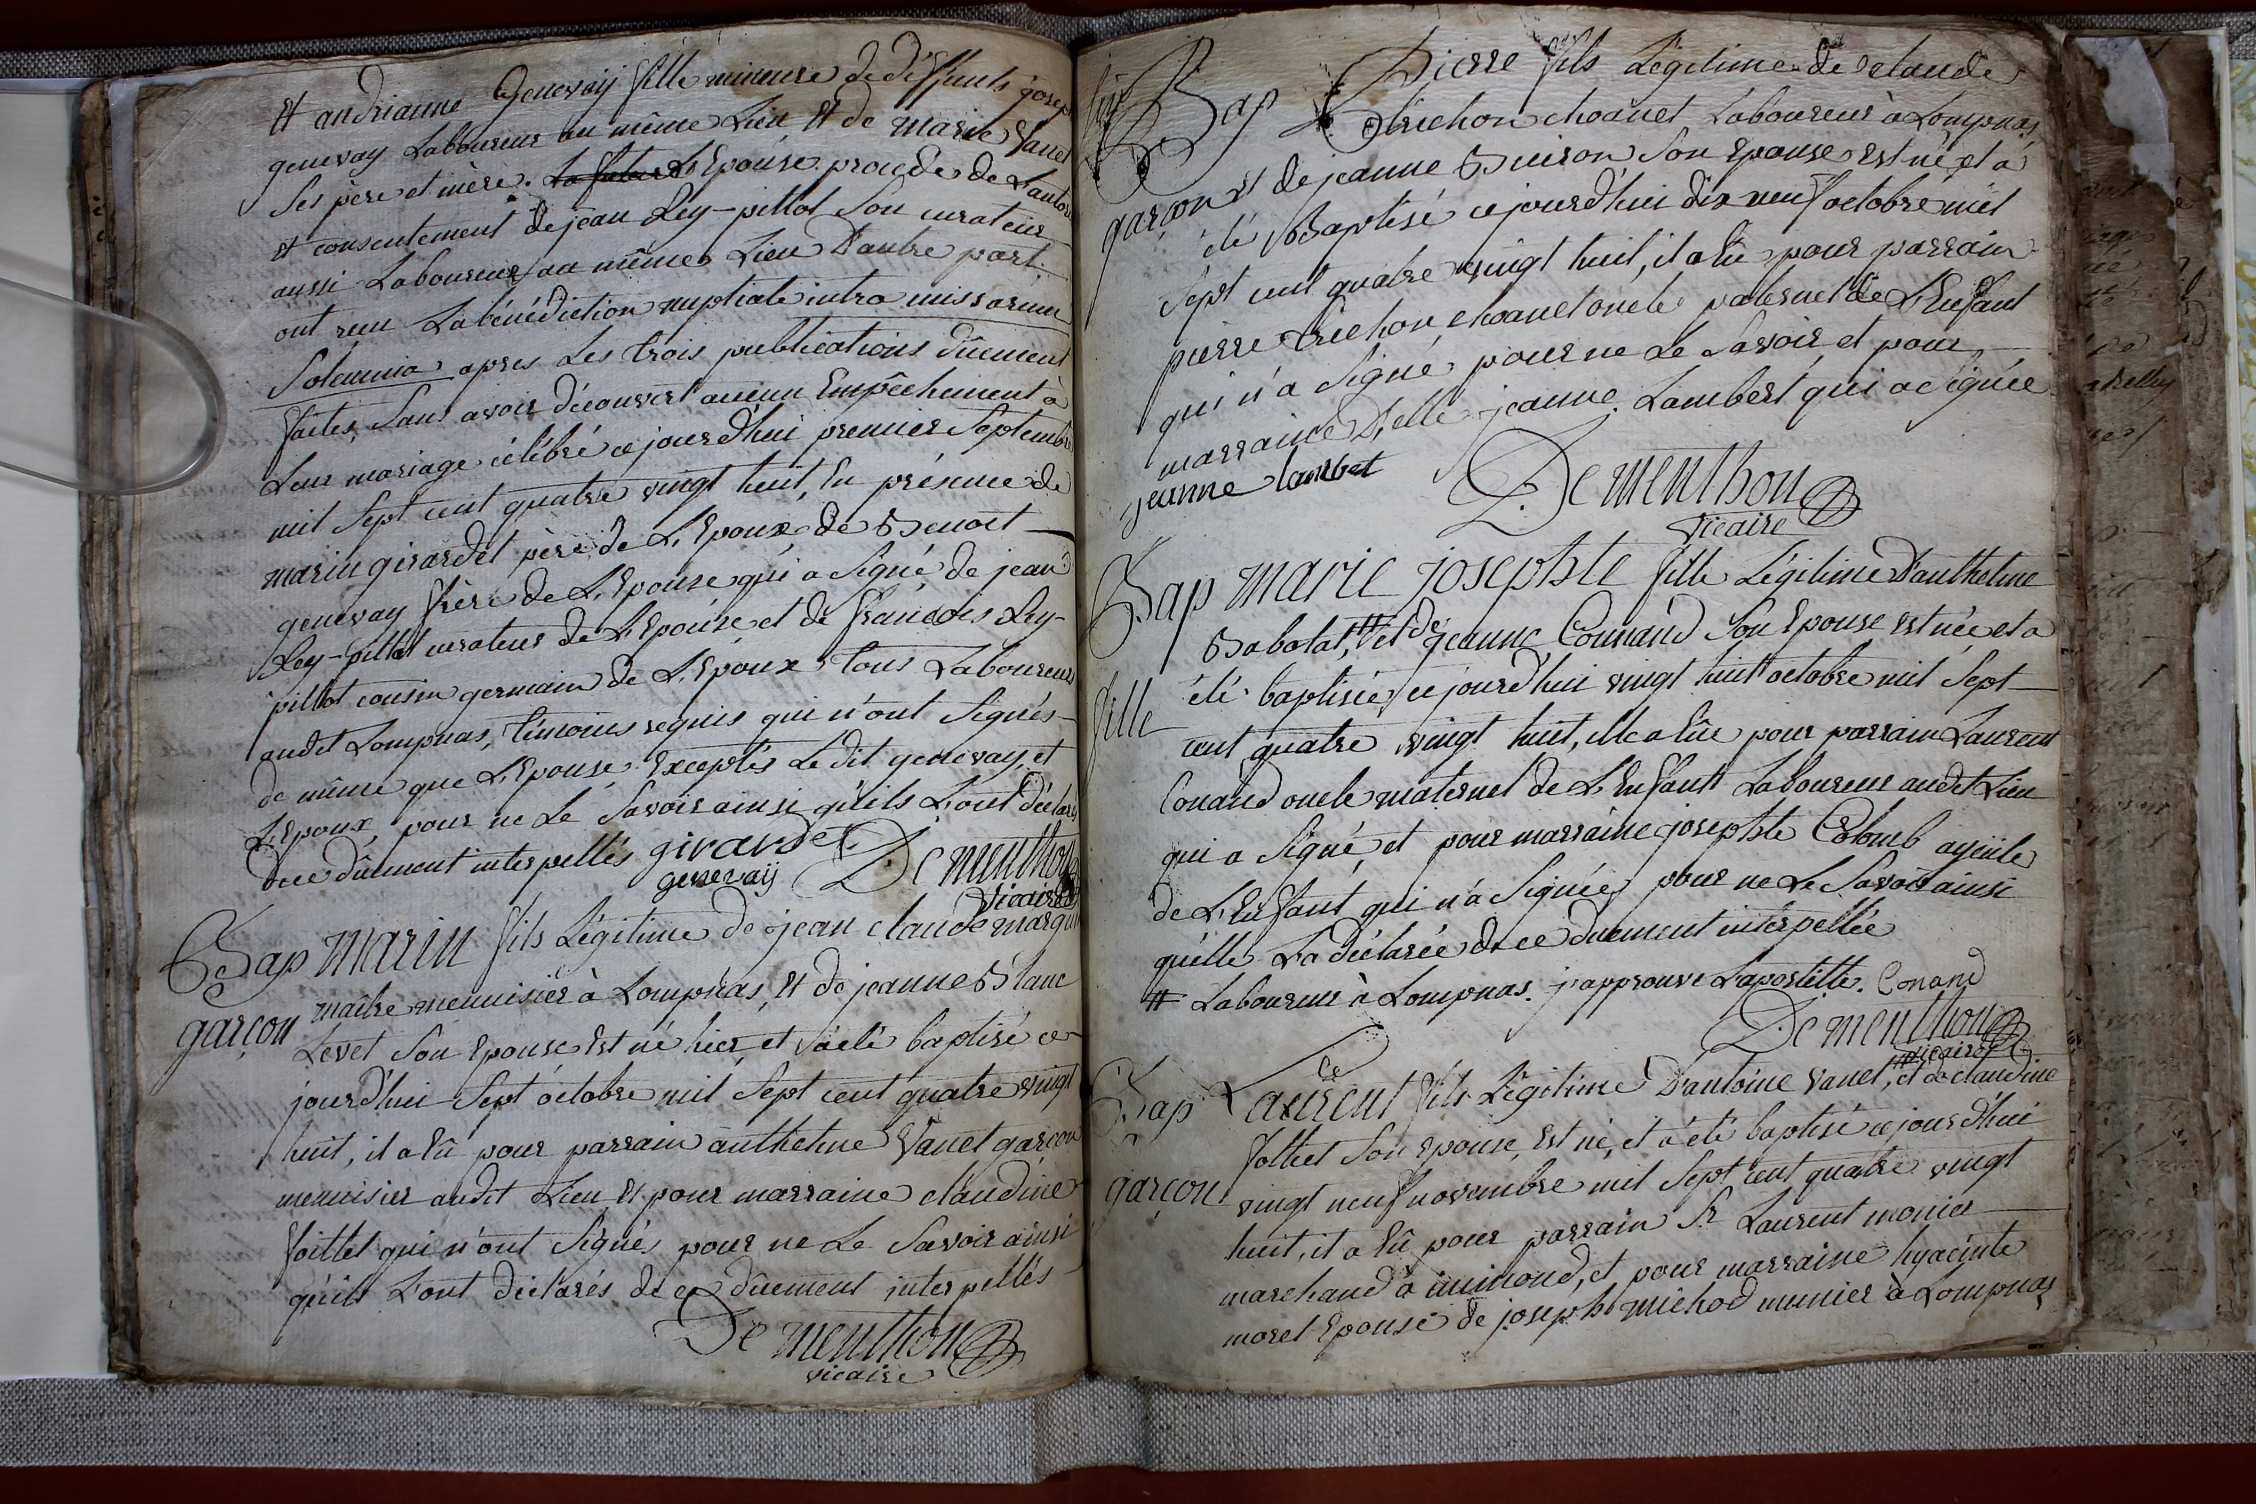 Et andrianne Genevaÿ fille mineure de deffunts josep
genevay Laboureur au même Lieu, Et de marie Vanet
Ses père et mère. La future L'Epouse procède de L'autor
et consentement de jean Rey-pillot Son curateur
aussi Laboureur au même Lieu D'autre part.
ont reçu La bénédiction nuptiale intra missarum
Solemnia après Les trois publications dûement
faites, Sans avoir découvert aucun Empêchement à
Leur mariage célébré ce jourd'hui premier Septembre
mil Sept cent quatre vingt huit, En présence de
marin girardet père de L'Epoux, de Benoit
genevay frère de L'Epouse qui a Signé, de jean
Rey-pillot curateur de L'Epouse et de francois Rey-
pillot cousin germain de L'Epoux, tous Laboureurs
audit Lompnas, témoins requis qui n'ont Signés
de même que L'Epouse Exceptés Ledit genevay, et
L'Epoux, pour ne Le Savoir ainsi qu'ils L'ont déclaré
de ce dûement interpellés girardet
genevaÿ Dementhon
vicaire
Bap marin fils Légitime de jean claude marquis
maître menuisier à Lompnas, Et de jeanne Blanc
garçon
Levet Son Epouse Est né hier, et a été baptisé ce
jourd'hui Sept octobre mil Sept cent quatre vingt
huit, il a Eû pour parrain anthelme Vanet garçon
menuisier audit Lieu, Et pour marraine claudine
foillet qui n'ont Signés pour ne Le Savoir ainsi
qu'ils L'ont déclarés de ce dûement interpellés
Dementhon
vicaire
Bap Pierre fils Légitime de claude
trichon choanet Laboureur à Lompnas
garçon
Et de jeanne Buison Son Epouse Est né et a
été Baptisé ce jourd'hui dix neuf octobre mil
Sept cent quatre vingt huit, il a Eû pour parrain
pierre trichon choanet oncle paternel de L'Enfant
qui n'a Signé pour ne Le Savoir et pour
marraine D'elle jeanne Lambert qui a Signée
jeanne lambet
Dementhon
vicaire
Bap marie josephte fille Légitime D'anthelme
Babolat, # et de jeanne Connand Son Epouse est née et a
fille
été baptisée ce jourd'hui vingt huit octobre mil Sept
cent quatre vingt huit, elle a Eûe pour parrain Laurent
Conand oncle maternel de L'Enfant Laboureur audit Lieu
qui a Signé, et pour marraine josephte Colomb ayeule
de L'Enfant qui n'a Signée pour ne Le Savoir ainsi
qu'elle L'a déclarée de ce dûement interpellée
# Laboureur à Lompnas. j'approuve L'apostille. Conand
Dementhon
vicaire
Bap Laurent fils Légitime D'antoine vanet, et de claudine
follet Son Epouse, Est né, et a été baptisé ce jourd'hui
garçon
vingt neuf novembre mil Sept cent quatre vingt
huit, il a Eû pour parrain Sr Laurent monier
marchand à inimond, et pour marraine hyacinte
moret Epouse de joseph michod munier à Lompnas